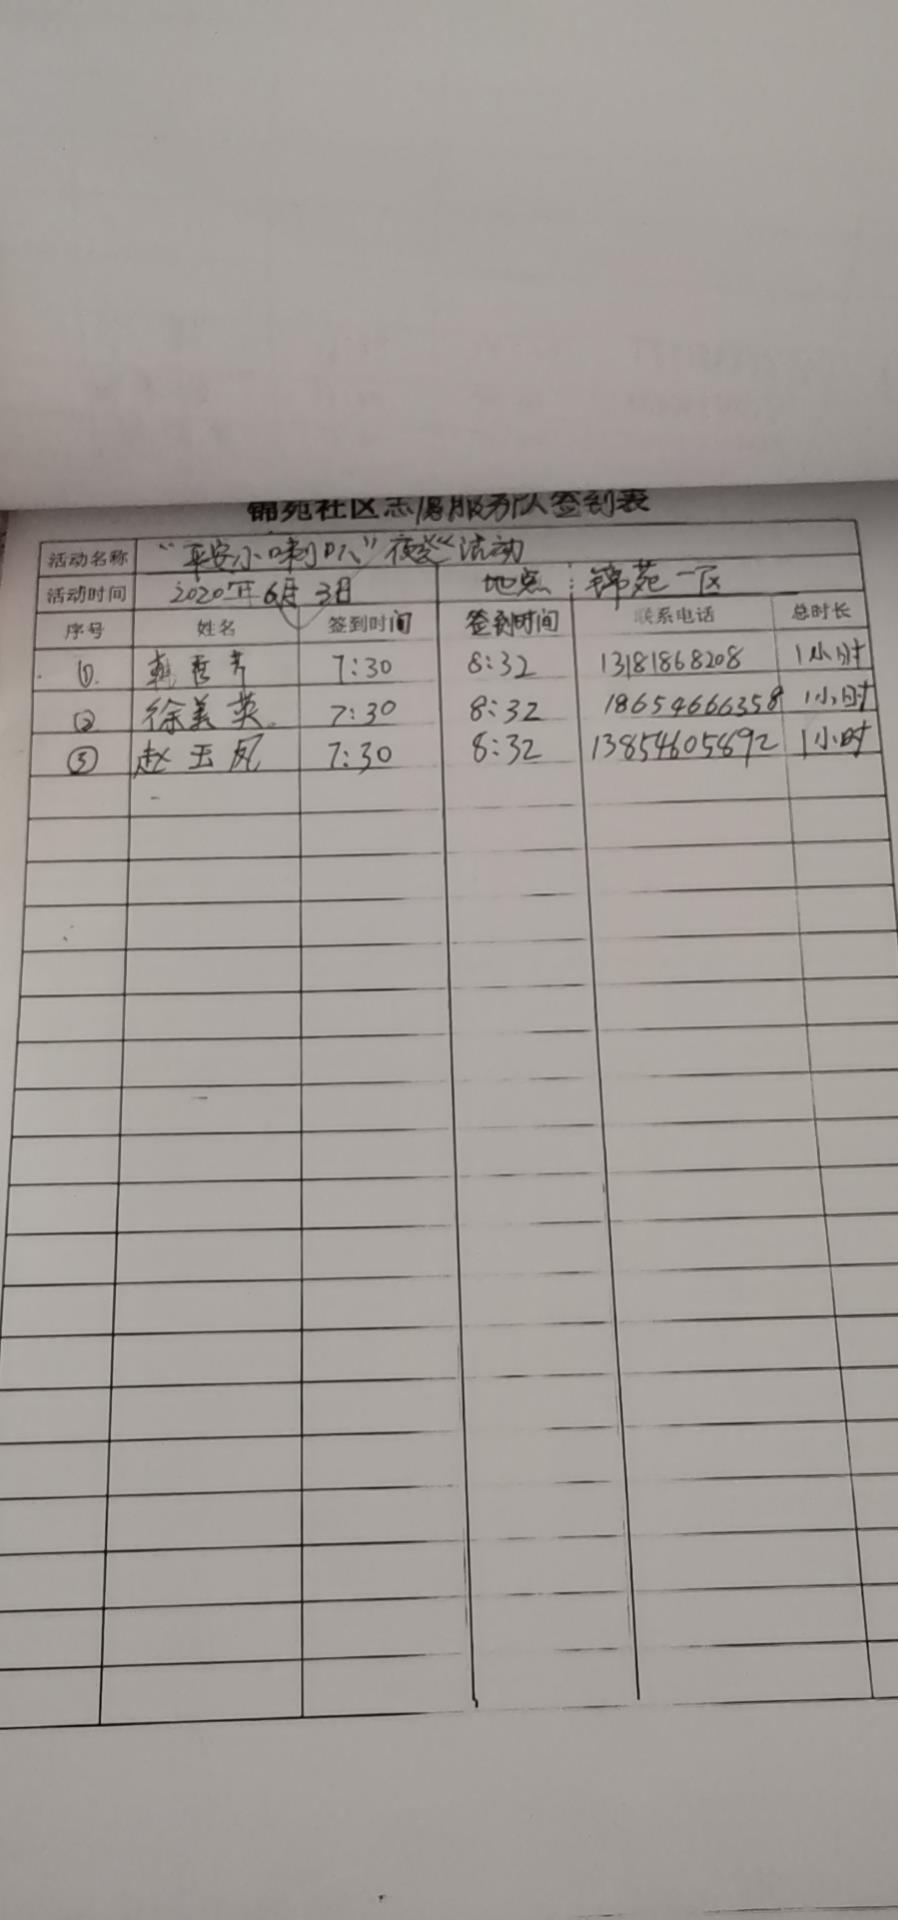 锦苑社区志愿服务队签到表
活动名称 “平安小喇叭”夜巡活动
活动时间 2020年6月3日 地点:锦苑一区
序号 姓名 签到时间 签到时间 联系电话 总时长
① 韩 芳 7:30 8:32 13181868208 1小时
② 徐美英 7:30 8:32 18654666358 1小时
③ 赵玉凤 7:30 8:32 13854605892 1小时